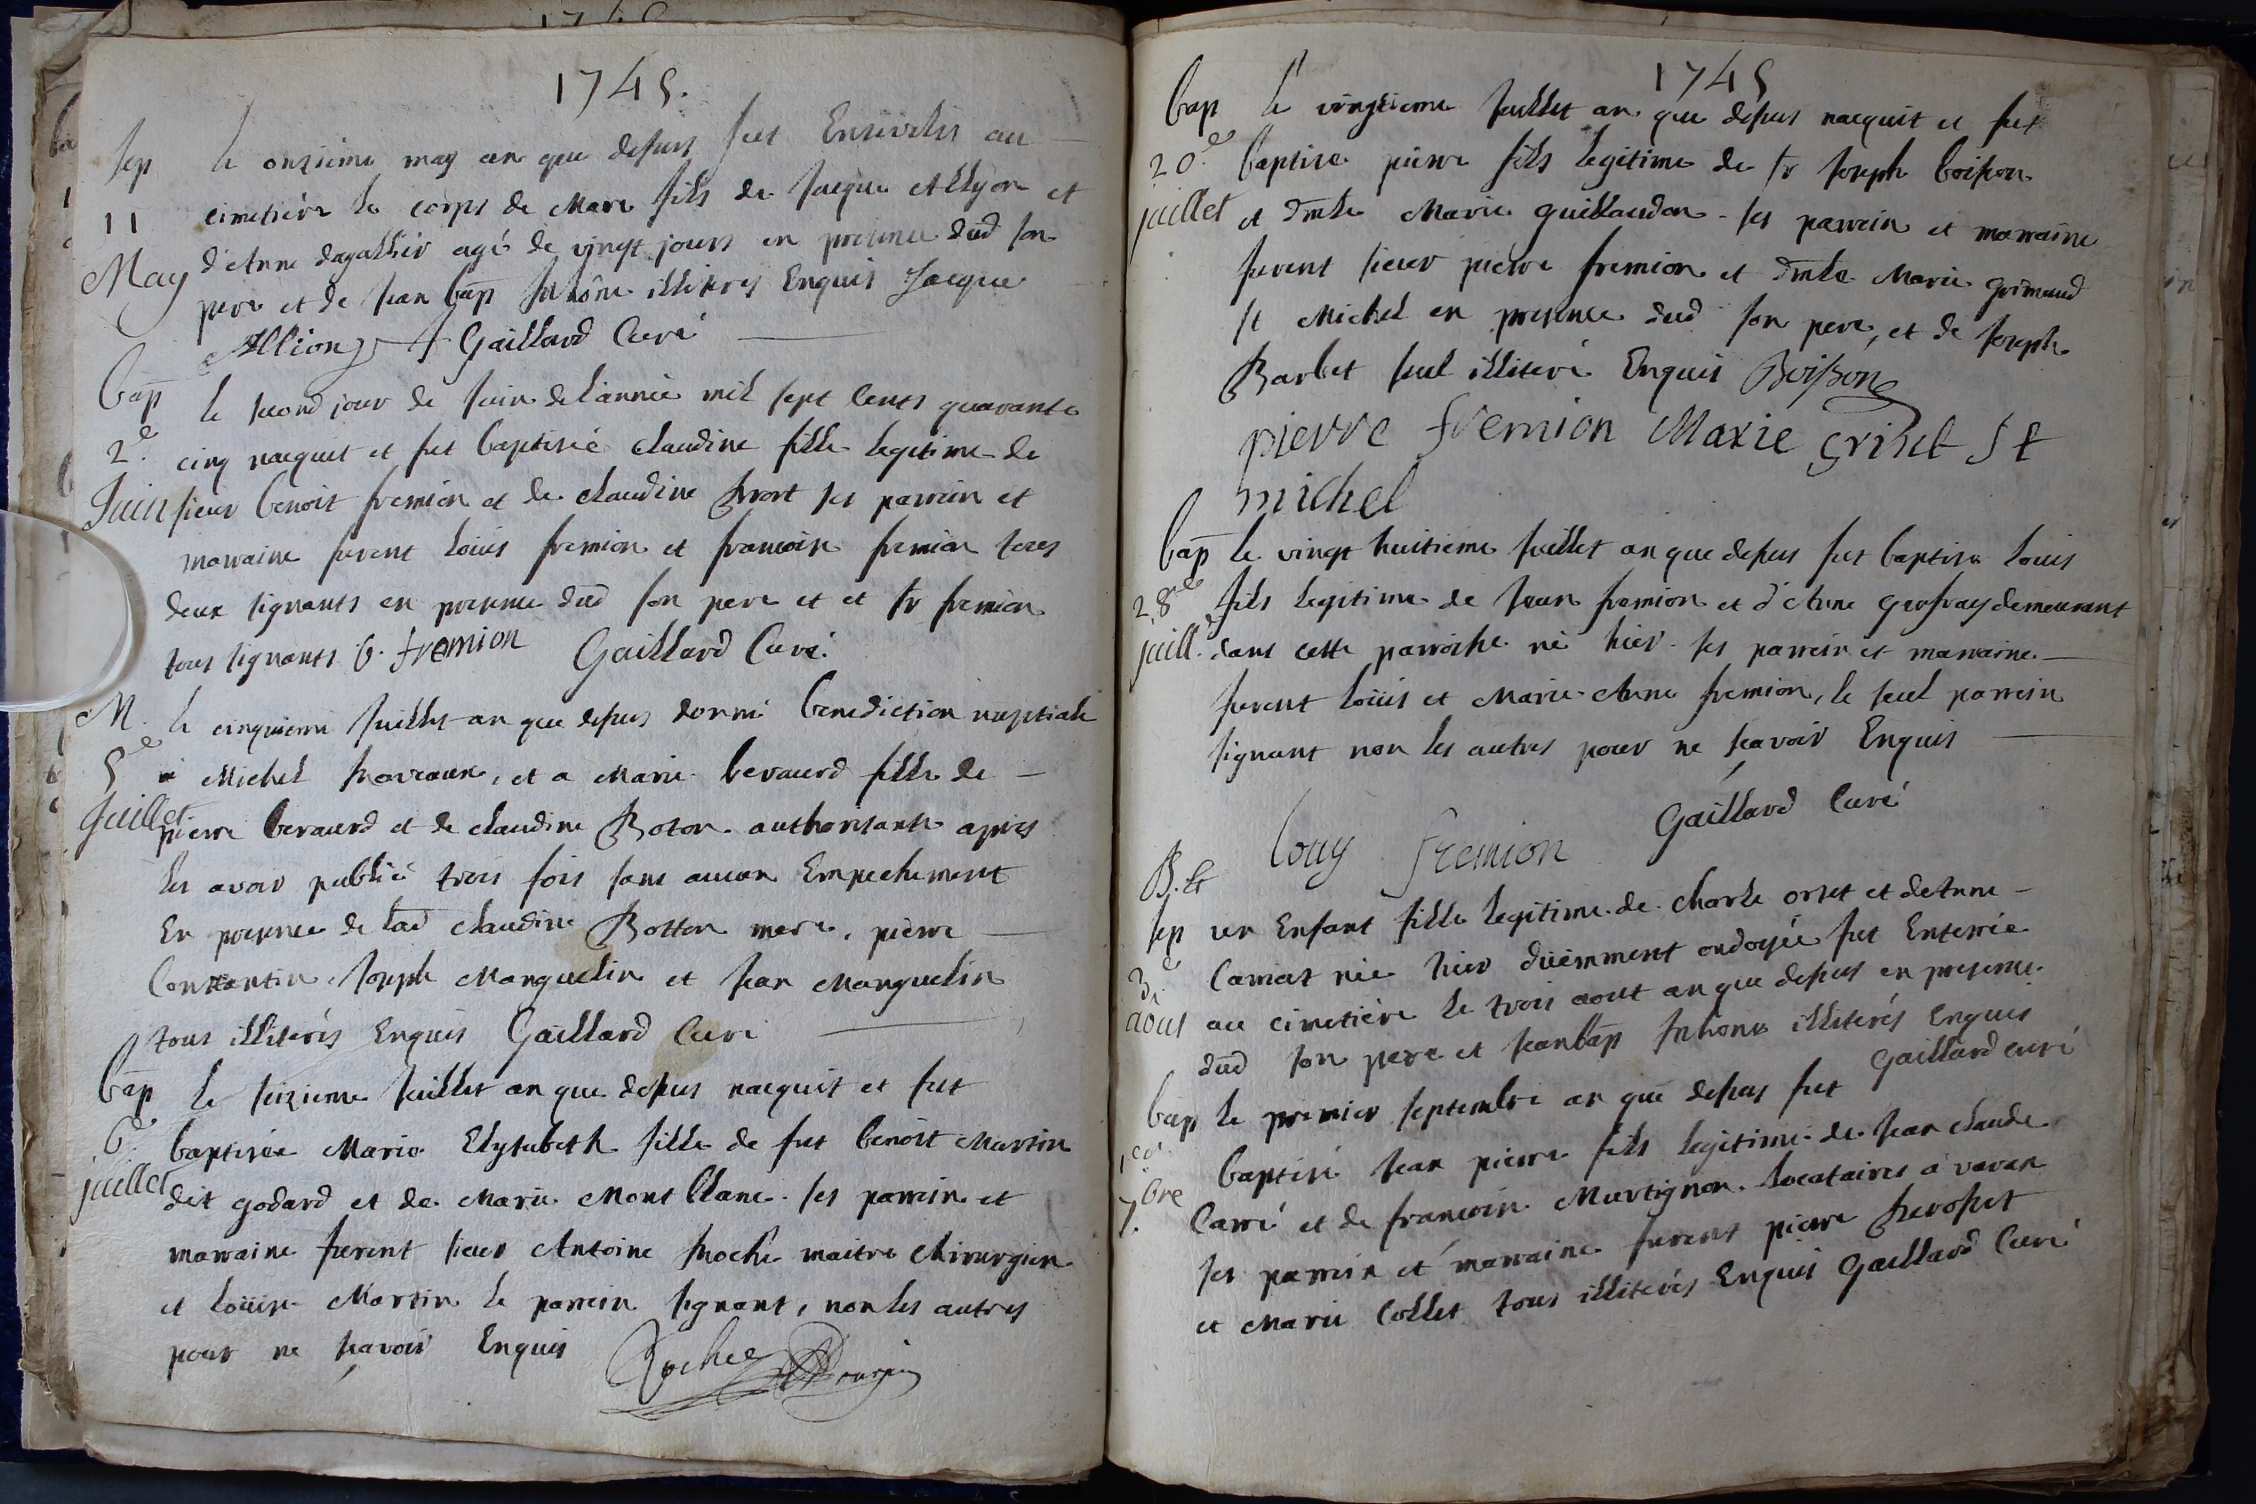 1745.
Sep le onzieme may an que dessus fut Enseveli au
11 cimetière le corps de Marc fils de Jacque Allyon et
May d'Anne dagallier agé de vingt jours en presence dud son
pere et de Jean bap illiteres Enquis Jacque
Allion Gaillard Curé
bap le second jour de Juin de l'année mil sept cents quarante
2e cinq nacquit et fut baptisée claudine fille legitime de
Juin sieur benoit fremion et de claudine ses parrein et
marraine furent loüis fremion et francoise fremion tous
deux signants en presence dud son pere et et sr fremion
tous signants b. fremion Gaillard Curé.
M. le cinquieme Juillet an que dessus donné benediction nuptiale
5e a Michel et a Marie beraurd fille de
Juillet pierre beraurd et de claudine Boton authorisante apres
les avoir publié trois fois sans aucun Empechement
En presence de lad claudine Botton mere, pierre
Constantin Joseph Manguelin et Jean Manguelin
tous illiterés Enquis Gaillard Curé
bap le seizieme Juillet an que dessus nacquit et fut
6e baptisée Marie Elysabeth fille de fut benoit Martin
juillet dit godard et de Marie Montblanc. ses parrein et
marraine furent sieur Antoine maitre chirurgien
et loüise Martin le parrein signant, non les autres
pour ne sçavoir Enquis Rochee
1745
bap le vingtieme Juillet an que dessus nacquit et fut
20.e baptise pierre fils legitime de sr Joseph boisson
juillet et dmlle Marie guillaudon ses parrein et marraine
furent sieur pierre fremion et dmlle Marie
st Michel en presence dud son pere, et de Joseph
Barbet seul illiteré Enquis Boisson
pierre fremion Marie griset St
michel
bap le vingt huitieme Juillet an que dessus fut baptisé louis
28e fils legitime de Jean fremion et d'Anne geofray demeurant
juill. dans cette parroisse né hier. ses parrein et marraine
furent loüis et Marie Anne fremion, le seul parrein
signant non les autres pour ne sçavoir Enquis
Gaillard Curé
louy fremion
B. et
sep un Enfant fille legitime de charle orset et de Anne
3e Carriat née hier düemment ondoyée fut Enterrée
aout au cimetière le trois aout an que dessus en presence
dud son pere et Jean bap illiterés Enquis
Gaillard curé
bap le premier septembre an que dessus fut
1er baptisé Jean pierre fils legitime de Jean claude
7.bre Carré et de francoise Murtignon locataires a
ses parrein et marraine furent pierre
et Marie Collet tous illiterés Enquis Gaillard Curé